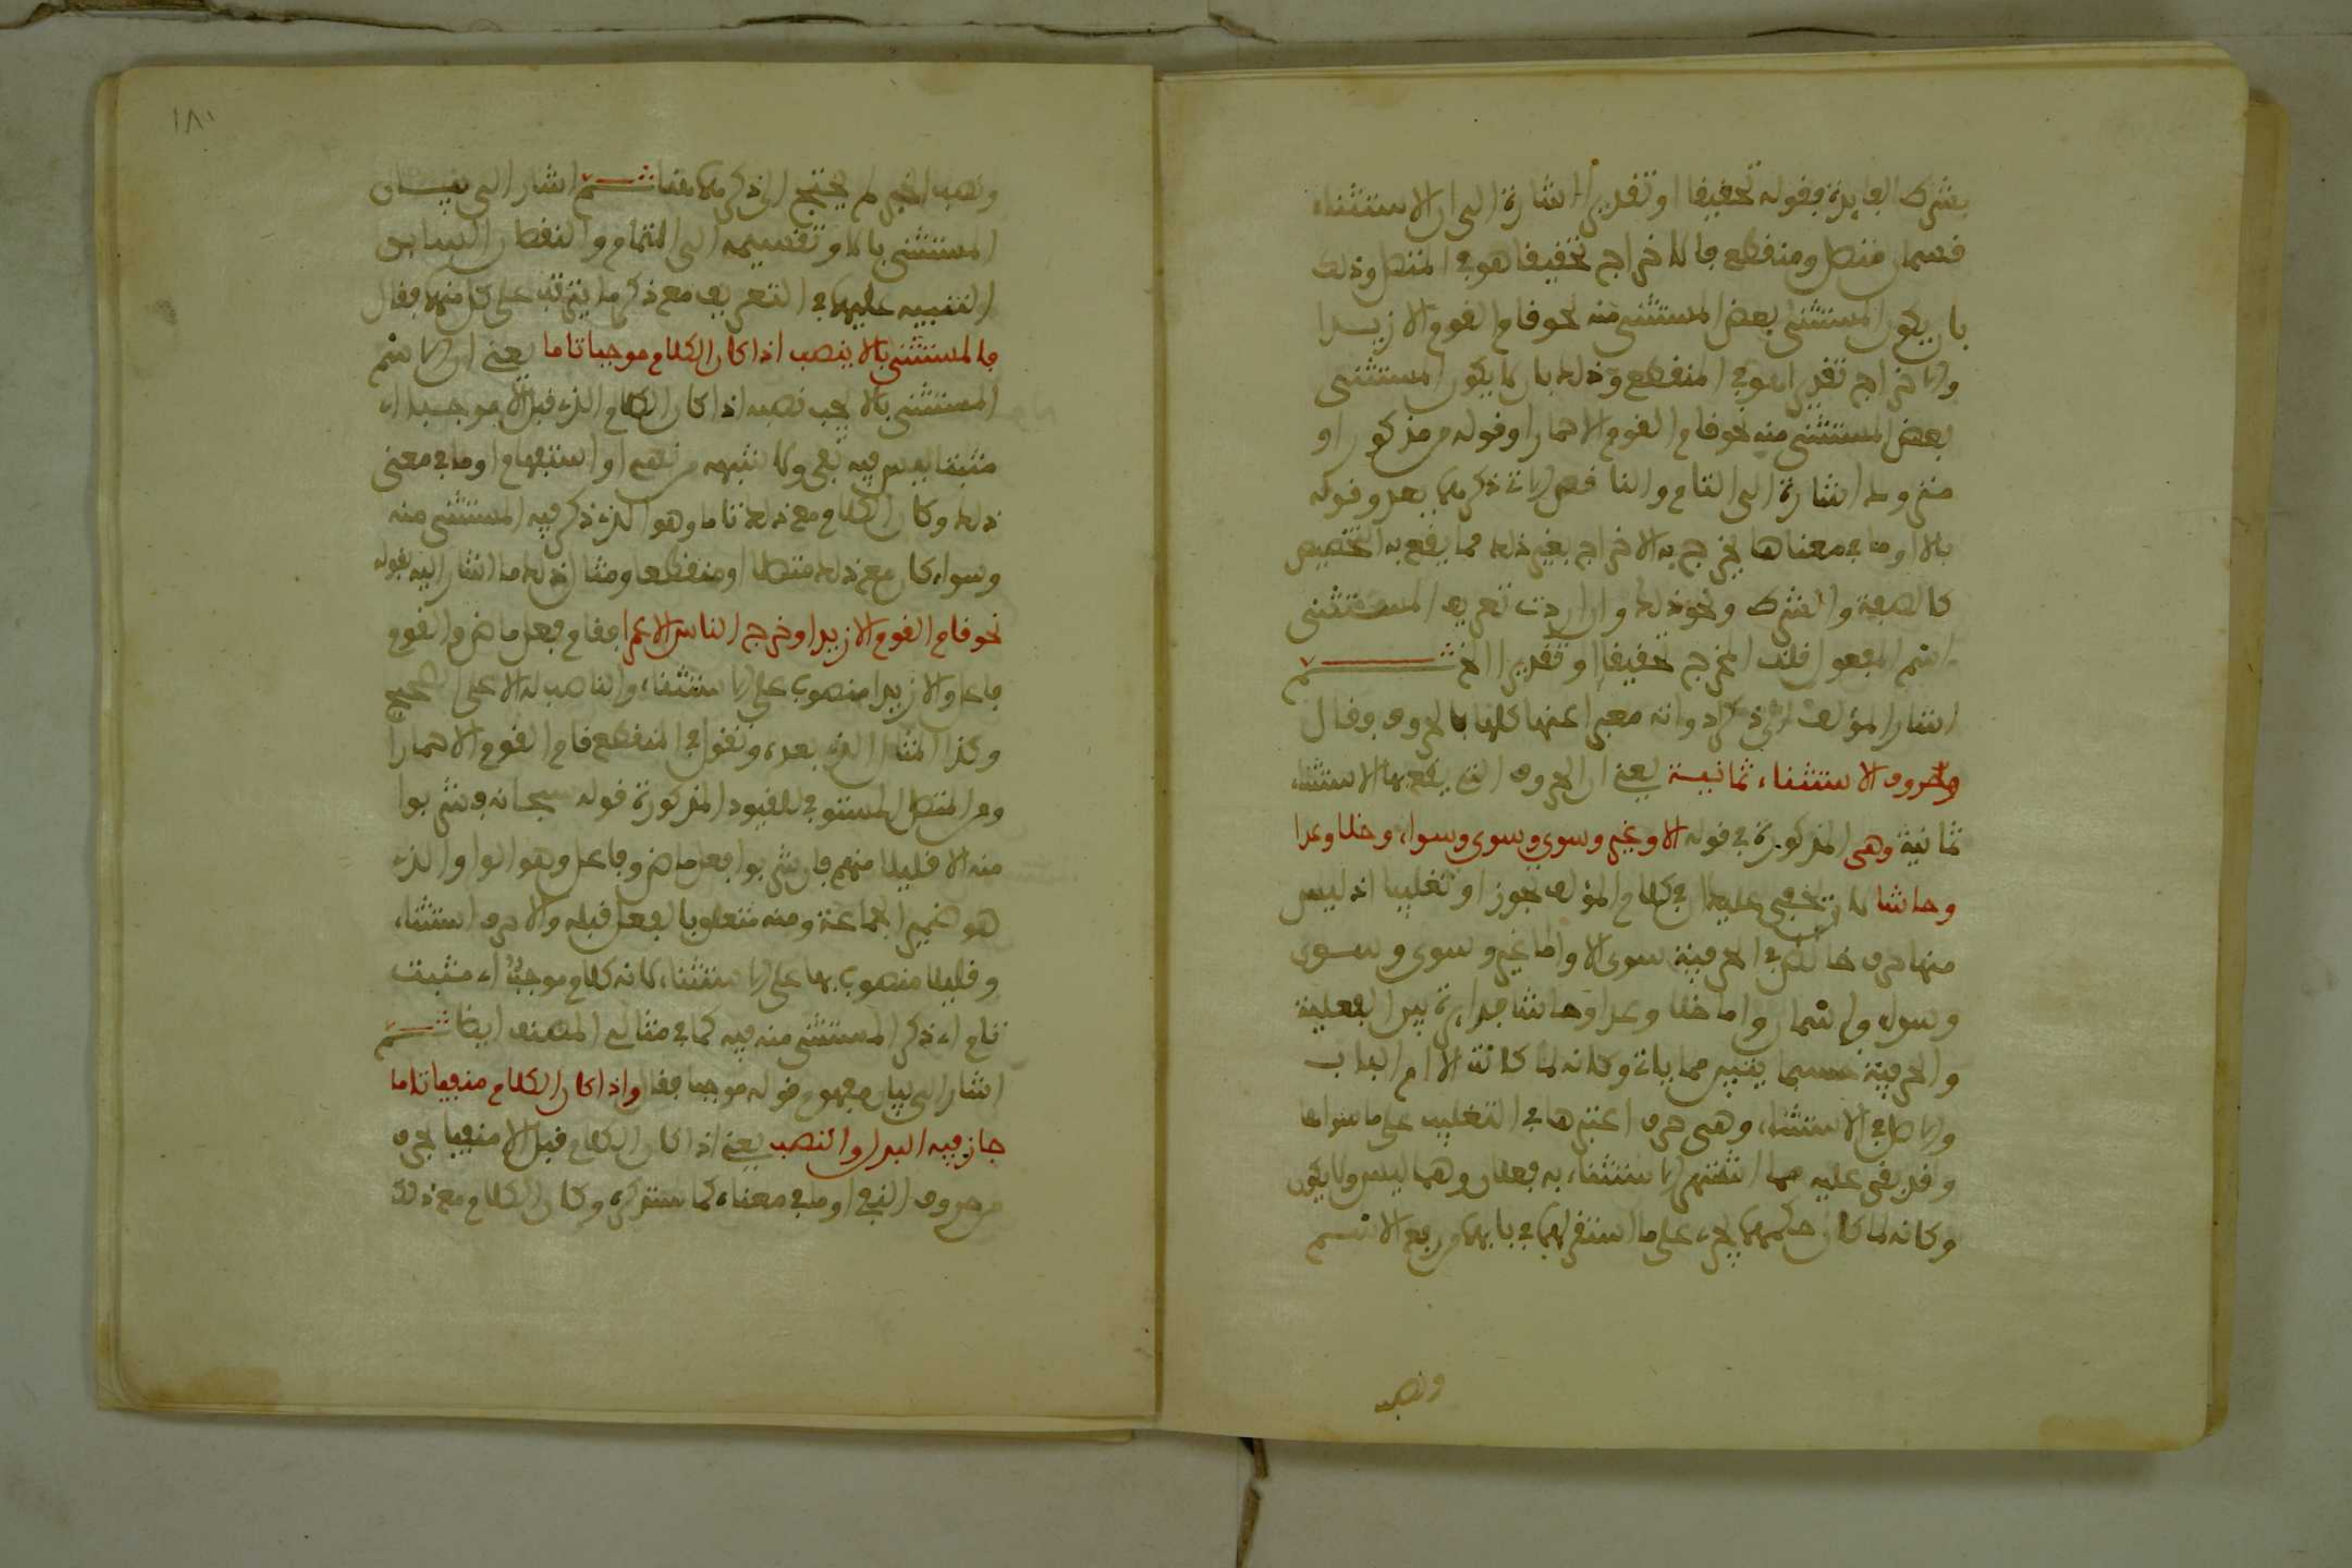 بشرط الفايدة فقوله تحقيقا او تقديرا اشارة الى ان الاستثناء
قسمان متصل ومنقطع فالاخراج تحقيقا هو في المتصل وذلك
بان يكون المستثنى بعض المستثنى منه نحو قام القوم الا زيدا
والاخراج تقديرا هو في المنقطع وذلك بان لا يكون المستثنى
بعض المستثنى منه نحو قام القوم الا حمارا وقوله من مذكور او
متروك اشارة الى التام والناقص الاتي ذكرهما بعد وقوله
بالا او ما في معناها يخرج به الاخراج بغير ذلك مما يقع به التخصيص
كالصفة والشرط ونحو ذلك وان اردت تعريف المستثنى
اسم المفعول قلت المخرج تحقيقا او تقديرا الخ ثم
اشار المؤلف الى ذكر ادواته معبرا عنها كلها بالحروف فقال
وحروف الاستثناء ثمانية يعني ان الحروف التي يقع بها الاستثناء
ثمانية وهي المذكورة في قوله الا وغير وسوى وسوى وسواء وخلا وعدا
وحاشا لا يخفى عليك ان في كلام المؤلف تجوزا او تغليبا اذ ليس
منها حرف خالص في الحرفية سوى الا واما غير وسوى وسوى
وسواء فاسماء واما خلا وعدا وحاشا فدايرة بين الفعلية
والحرفية حسبما يتبين مما ياتي وكانه لما كانت الا ام الباب
والاصل في الاستثناء وهي حرف اعتبرها في التغليب على ما سواها
وقد بقي عليه مما اشتهر الاستثناء به فعلان وهما ليس ولا يكون
وكانه لما كان حكمهما يجري على ما استقر لهما في بابهما من رفع الاسم
ونصب
١٨١
ونصب الخبر لم يحتج الى ذكرهما هنا ثم اشار الى بيان
المستثنى بالا وتقسيمه الى التمام والنقصان السابق
التنبيه عليهما في التعريف مع ذكر ما يترتب على كل منهما فقال
فالمستثنى بالا ينصب اذا كان الكلام موجبا تاما يعني ان الاسم
المستثنى بالا يجب نصبه اذا كان الكلام الذي قبل الا موجبا اي
مثبتا ليس فيه نفي ولا شبهه من نهي او استفهام او ما في معنى
ذلك وكان الكلام مع ذلك تاما وهو الذي ذكر فيه المستثنى منه
وسواء كان مع ذلك متصلا او منقطعا ومثال ذلك ما اشار اليه بقوله
نحو قام القوم الا زيدا وخرج الناس الا عمرا فقام فعل ماض والقوم
فاعل والا زيدا منصوب على الاستثناء والناصب له الا على الصحيح
وكذا المثال الذي بعده وتقول في المنقطع قام القوم الا حمارا
ومن المتصل المستوفي للقيود المذكورة قوله سبحانه فشربوا
منه الا قليلا منهم فان شربوا فعل ماض وفاعل وهو الواو الذي
هو ضمير الجماعة ومنه متعلق بالفعل قبله والا حرف استثناء
وقليلا منصوب بها على الاستثناء لانه كلام موجب اي مثبت
تام اي ذكر المستثنى منه فيه كما في مثالي المصنف ايضا ثم
اشار الى بيان مفهوم قوله موجبا فقال واذا كان الكلام منفيا تاما
جاز فيه البدل والنصب يعني اذا كان الكلام قبل الا منفيا بحرف
من حروف النفي او ما في معناه كما ستذكره وكان الكلام مع ذلك